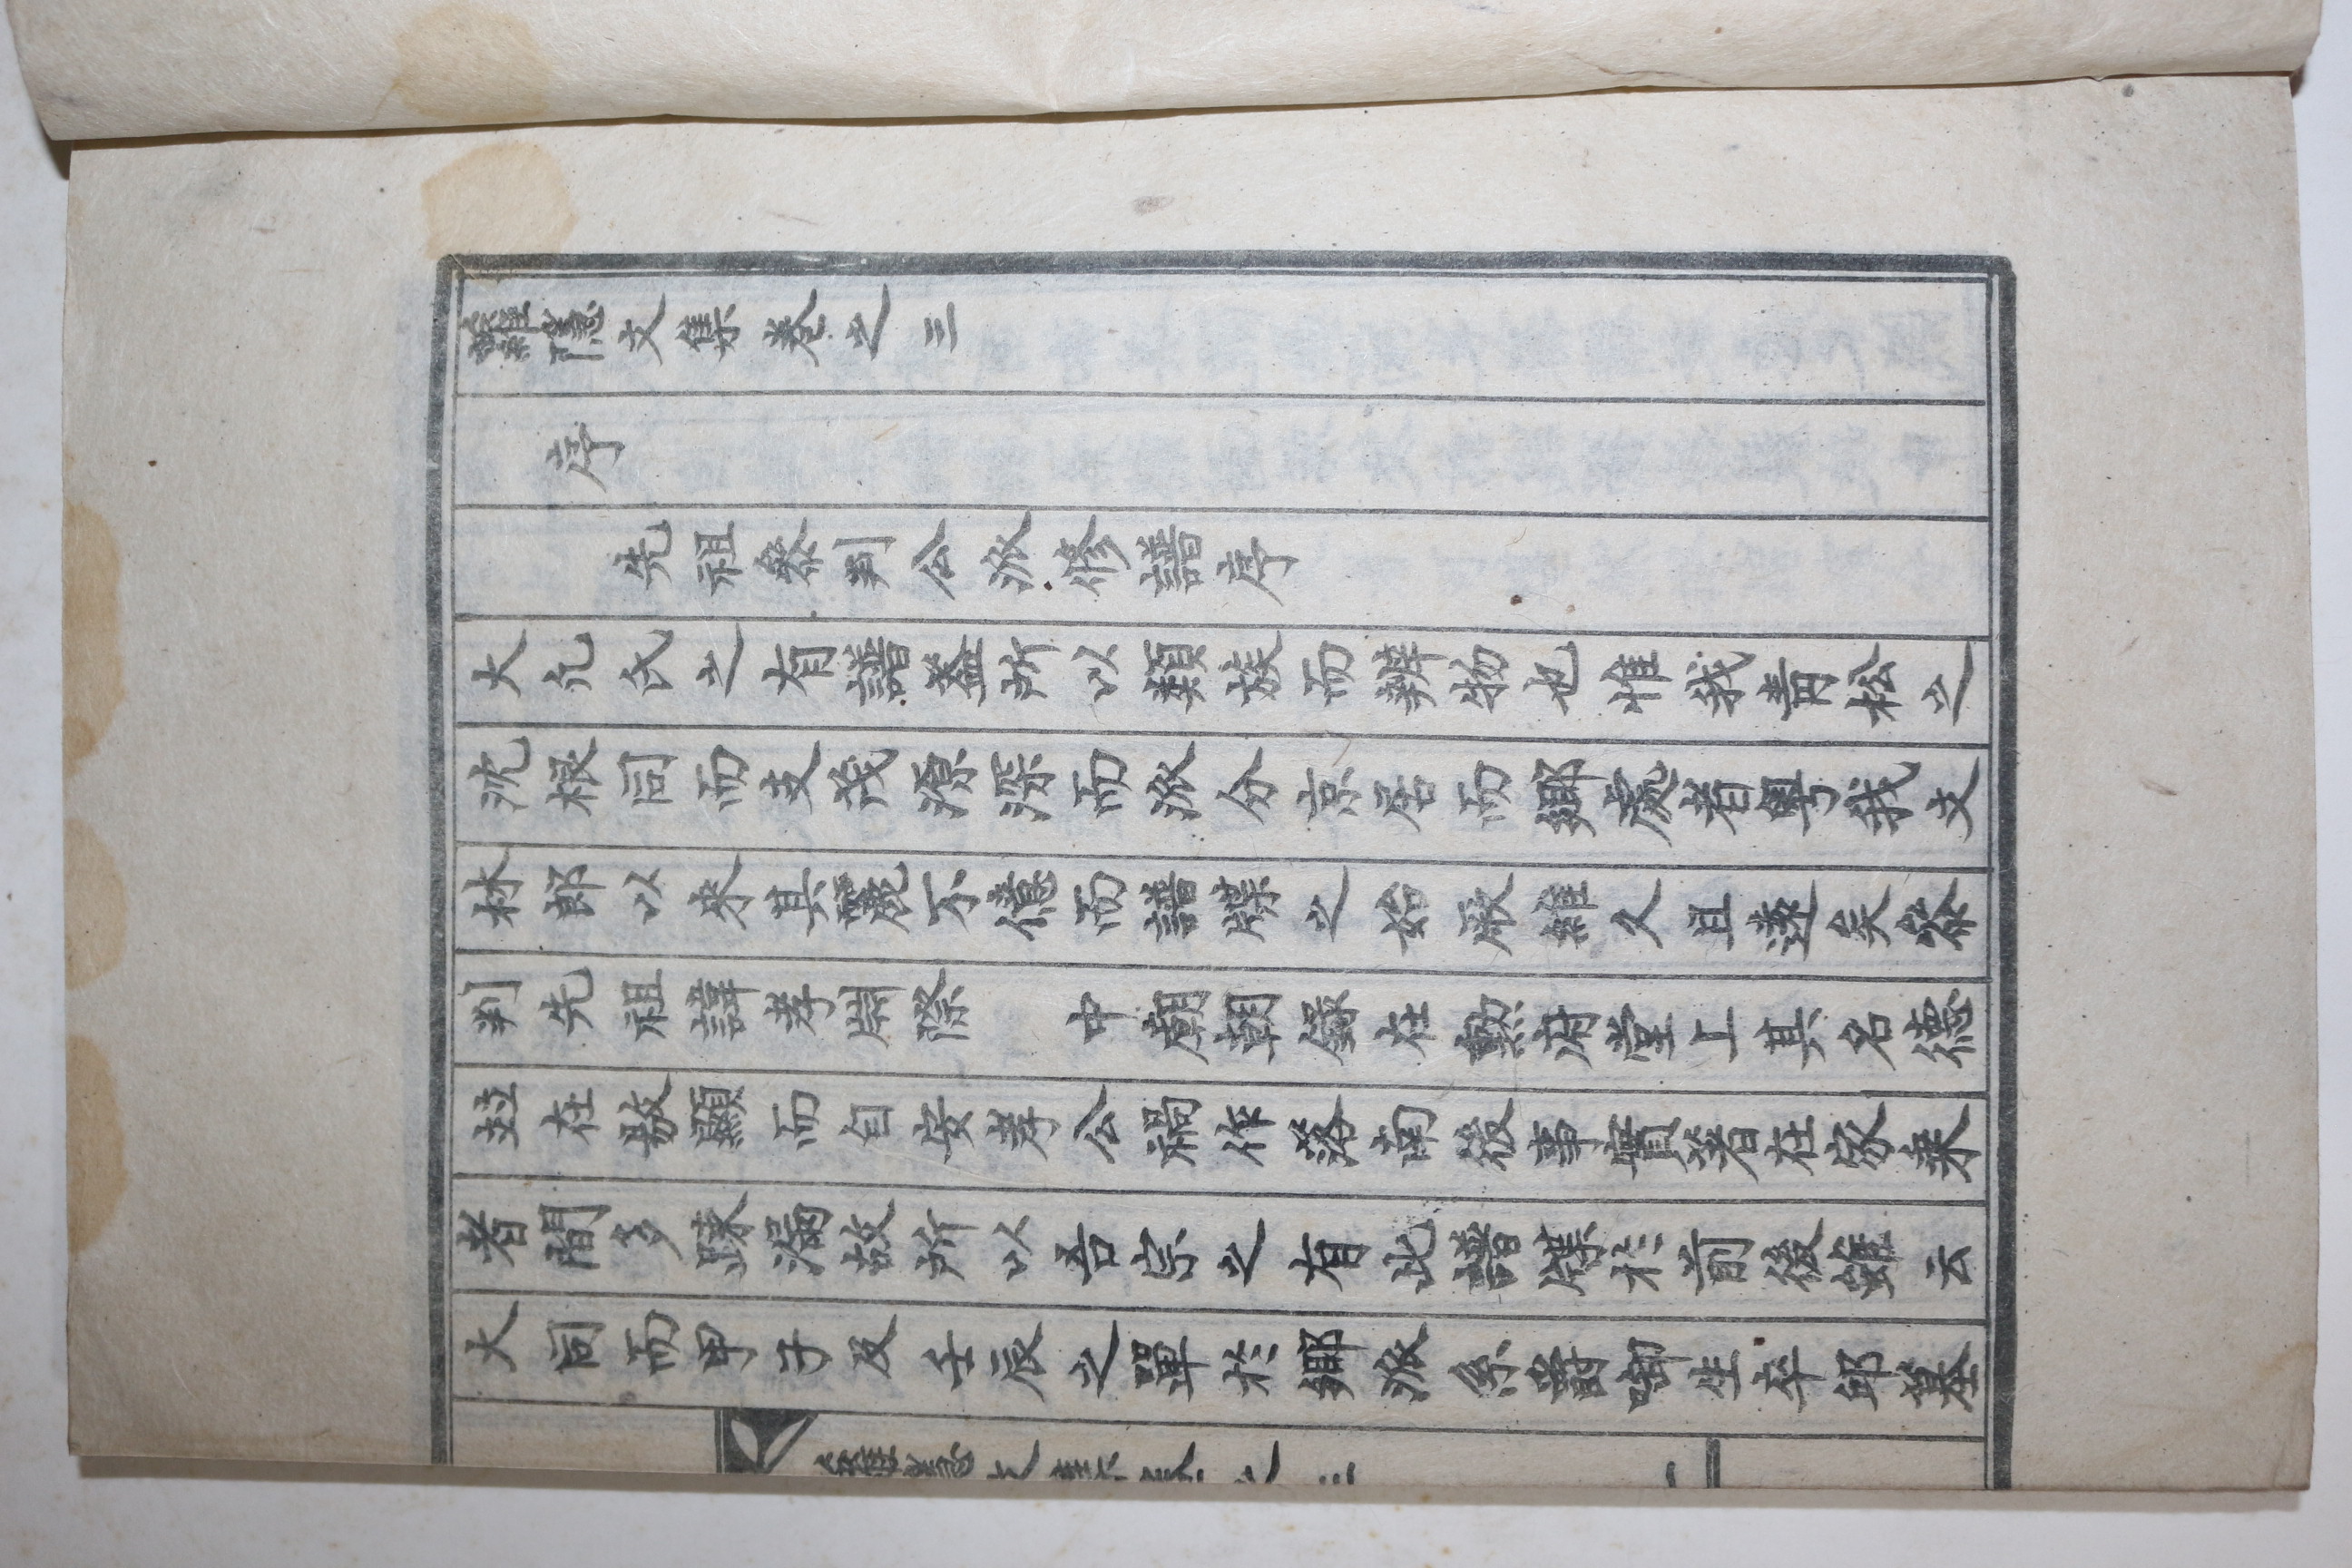 蘿隱文集卷之三
序
先祖叅判公派修譜序
大凢氏之有譜盖所以類族而辨物也惟我靑松之
沈根同而支茂源深而派分京居而鄕處者粤我文
林郎以來其麗不億而譜牒之始厥維久且遠矣叅
判先祖諱孝尙際　中廟朝錄在勲府堂上其名德
並在敭顯而自安孝公禍作落南後事實著在家乗
者間多踈漏故所以吾宗之有此譜牒於前後雖云
大同而甲子及壬辰之單於鄕派系爵啣生卒邱墓
蘿隱文集卷之三　一